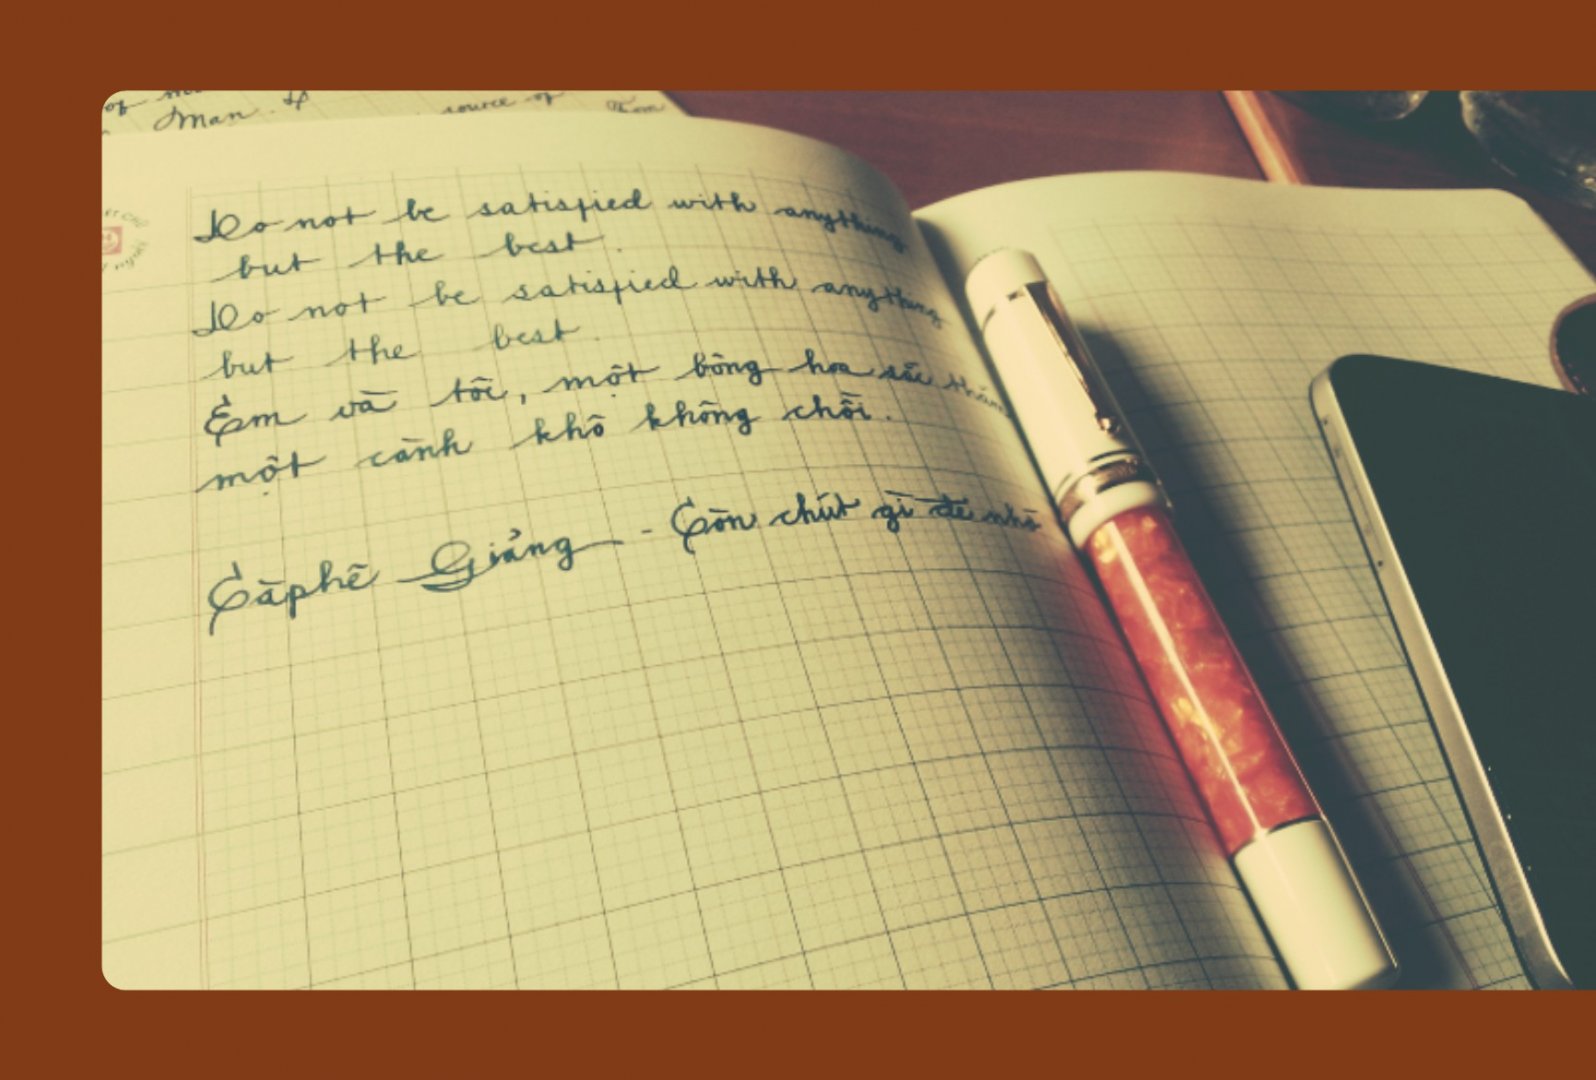 of
Man. &
source of
Do not be satisfied with anything
but the best.
Do not be satisfied with anything
but the best.
Em và tôi, một bông hoa sắc thắm
một cành khô không chồi.
Càphê Giảng - Còn chút gì để nhớ